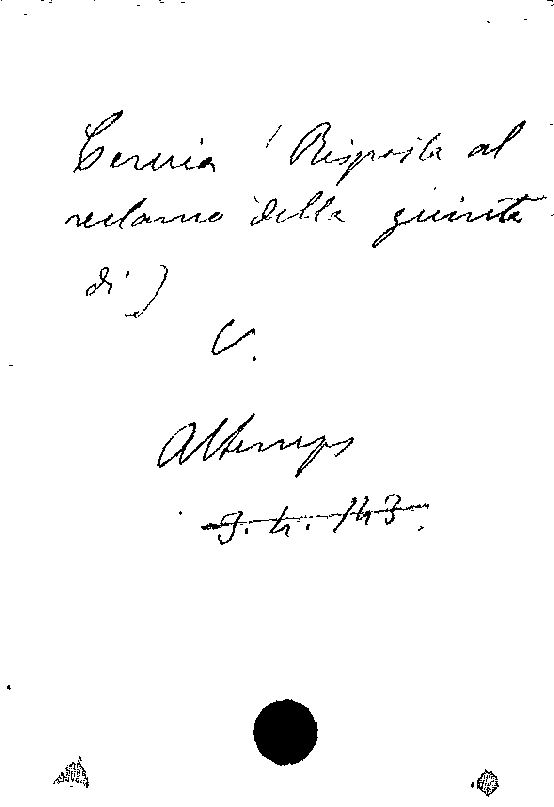 Cervia (Risposta al
reclamo della giunta
di)
V.
Altemps
3. 4. 143.